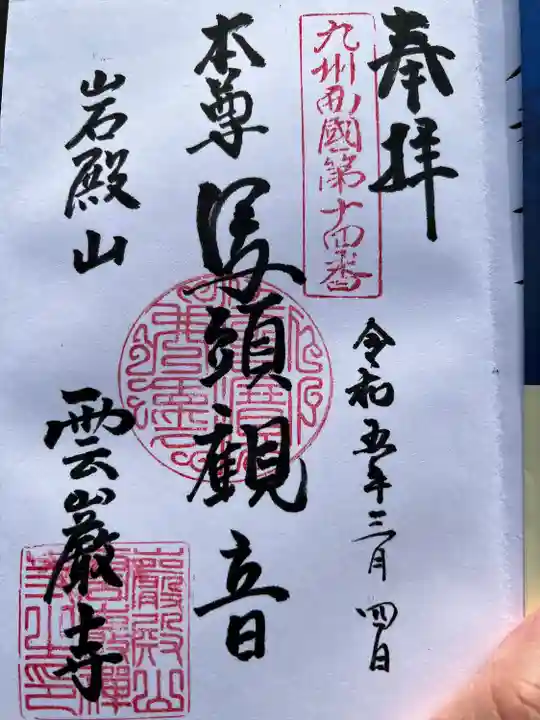 奉拝
九州西國第十四番
令和五年三月四日
本尊
馬頭觀音
岩殿山
雲巌寺